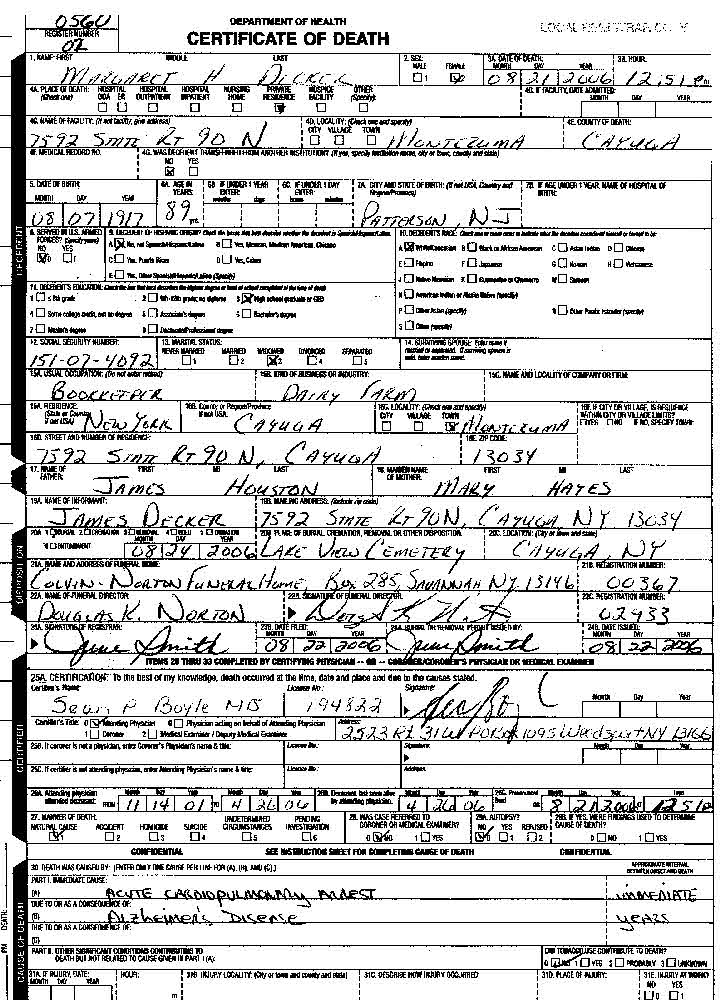 0560
REGISTER NUMBER
02
DEPARTMENT OF HEALTH
CERTIFICATE OF DEATH
LOCAL REGISTRAR COPY
1. NAME: FIRST MIDDLE LAST
MARGARET H DECKER
2. SEX: MALE FEMALE
3A. DATE OF DEATH: MONTH DAY YEAR
08 21 2006
3B. HOUR:
12:51 pm
4A. PLACE OF DEATH: (Check one) HOSPITAL DOA HOSPITAL ER HOSPITAL OUTPATIENT HOSPITAL INPATIENT NURSING HOME PRIVATE RESIDENCE HOSPICE FACILITY OTHER (Specify)
4B. IF FACILITY, DATE ADMITTED: MONTH DAY YEAR
4C. NAME OF FACILITY: (If not facility, give address)
7592 STATE RT 90 N
4D. LOCALITY: (Check one and specify) CITY VILLAGE TOWN
MONTEZUMA
4E. COUNTY OF DEATH:
CAYUGA
4F. MEDICAL RECORD NO.
4G. WAS DECEDENT TRANSFERRED FROM ANOTHER INSTITUTION? (If yes, specify institution name, city or town, county and state)
NO YES
5. DATE OF BIRTH: MONTH DAY YEAR
08 07 1917
6A. AGE IN YEARS:
89 yrs.
6B. IF UNDER 1 YEAR ENTER: months days
6C. IF UNDER 1 DAY ENTER: hours minutes
7A. CITY AND STATE OF BIRTH: (If not USA, Country and Region/Province)
PATTERSON, NJ
7B. IF AGE UNDER 1 YEAR, NAME OF HOSPITAL OF BIRTH:
DECEDENT
8. SERVED IN U.S. ARMED FORCES? (Specify years)
NO YES
0 1
A No, not Spanish/Hispanic/Latino B Yes, Mexican, Mexican American, Chicano
C Yes, Puerto Rican D Yes, Cuban
E Yes, Other Spanish/Hispanic/Latino (Specify)
A White/Caucasian B Black or African American C Asian Indian D Chinese
E Filipino F Japanese G Korean H Vietnamese
J Native Hawaiian K Guamanian or Chamorro M Samoan
N American Indian or Alaska Native (specify)
P Other Asian (specify) R Other Pacific Islander (specify)
S Other (specify)
1 ≤ 8th grade 2 9th-12th grade; no diploma 3 High school graduate or GED
4 Some college credit, but no degree 5 Associate's degree 6 Bachelor's degree
7 Master's degree 8 Doctorate/Professional degree
12. SOCIAL SECURITY NUMBER:
151-07-4092
13. MARITAL STATUS:
NEVER MARRIED MARRIED WIDOWED DIVORCED SEPARATED
1 2 3 4 5
14. SURVIVING SPOUSE:
15A. USUAL OCCUPATION: (Do not enter retired)
BOOKKEEPER
15B. KIND OF BUSINESS OR INDUSTRY:
DAIRY FARM
15C. NAME AND LOCALITY OF COMPANY OR FIRM:
16A. RESIDENCE: (State or Country if not USA)
NEW YORK
16B. County or Region/Province if not USA:
CAYUGA
16C. LOCALITY: (Check one and specify) CITY VILLAGE TOWN
MONTEZUMA
16F. IF CITY OR VILLAGE, IS RESIDENCE WITHIN CITY OR VILLAGE LIMITS?
YES NO IF NO, SPECIFY TOWN:
16D. STREET AND NUMBER OF RESIDENCE:
7592 STATE RT 90 N, CAYUGA
16E. ZIP CODE:
13034
17. NAME OF FATHER: FIRST MI LAST
JAMES HOUSTON
18. MAIDEN NAME OF MOTHER: FIRST MI LAST
MARY HAYES
19A. NAME OF INFORMANT:
JAMES DECKER
19B. MAILING ADDRESS: (include zip code)
7592 STATE RT 90N, CAYUGA, NY 13034
20A. 1 BURIAL 2 CREMATION MONTH DAY YEAR
08 24 2006
20B. PLACE OF BURIAL, CREMATION, REMOVAL OR OTHER DISPOSITION:
LAKE VIEW CEMETERY
20C. LOCATION: (City or town and state)
CAYUGA, NY
DISPOSITION
21A. NAME AND ADDRESS OF FUNERAL HOME:
COLVIN-NORTON FUNERAL HOME, BOX 285, SAVANNAH NY, 13146
21B. REGISTRATION NUMBER:
00367
22A. NAME OF FUNERAL DIRECTOR:
DOUGLAS K. NORTON
22B. SIGNATURE OF FUNERAL DIRECTOR:
22C. REGISTRATION NUMBER:
02933
23A. SIGNATURE OF REGISTRAR:
June Smith
23B. DATE FILED: MONTH DAY YEAR
08 22 2006
24A. BURIAL OR REMOVAL PERMIT ISSUED BY:
June Smith
24B. DATE ISSUED: MONTH DAY YEAR
08 22 2006
ITEMS 25 THRU 33 COMPLETED BY CERTIFYING PHYSICIAN -- OR -- CORONER/CORONER'S PHYSICIAN OR MEDICAL EXAMINER
25A. CERTIFICATION: To the best of my knowledge, death occurred at the time, date and place and due to the causes stated.
Certifier's Name: License No.: Signature: Month Day Year
Sean P Boyle MD 194822
Certifier's Title: 0 Attending Physician Physician acting on behalf of Attending Physician Address:
1 Coroner 2 Medical Examiner / Deputy Medical Examiner
CERTIFIER
25B. If coroner is not a physician, enter Coroner's Physician's name & title: License No.: Signature: Month Day Year
25C. If certifier is not attending physician, enter Attending Physician's name & title: License No.: Address:
26A. Attending physician attended deceased: FROM 11 14 01 TO 4 26 06
26B. Deceased last seen alive by attending physician: 4 26 06
26C. Pronounced dead ON 8 21 2006
27. MANNER OF DEATH: NATURAL CAUSE ACCIDENT HOMICIDE SUICIDE UNDETERMINED CIRCUMSTANCES PENDING INVESTIGATION
1 2 3 4 5 6
28. WAS CASE REFERRED TO CORONER OR MEDICAL EXAMINER?
0 NO 1 YES
29A. AUTOPSY?
NO YES REFUSED
0 1 2
29B. IF YES, WERE FINDINGS USED TO DETERMINE CAUSE OF DEATH?
0 NO 1 YES
CONFIDENTIAL SEE INSTRUCTION SHEET FOR COMPLETING CAUSE OF DEATH CONFIDENTIAL
30. DEATH WAS CAUSED BY: (ENTER ONLY ONE CAUSE PER LINE FOR (A), (B), AND (C).)
APPROXIMATE INTERVAL BETWEEN ONSET AND DEATH
PART I. IMMEDIATE CAUSE:
(A) ACUTE CARDIOPULMONARY ARREST IMMEDIATE
DUE TO OR AS A CONSEQUENCE OF:
(B) Alzheimer's Disease years
DUE TO OR AS A CONSEQUENCE OF:
(C)
CAUSE OF DEATH
PART II. OTHER SIGNIFICANT CONDITIONS CONTRIBUTING TO DEATH BUT NOT RELATED TO CAUSE GIVEN IN PART I (A):
DID TOBACCO USE CONTRIBUTE TO DEATH?
0 NO 1 YES 2 PROBABLY 3 UNKNOWN
31A. IF INJURY, DATE: MONTH DAY YEAR HOUR: m
31B. INJURY LOCALITY: (City or town and county and state)
31C. DESCRIBE HOW INJURY OCCURRED
31D. PLACE OF INJURY:
31E. INJURY AT WORK?
NO YES
0 1